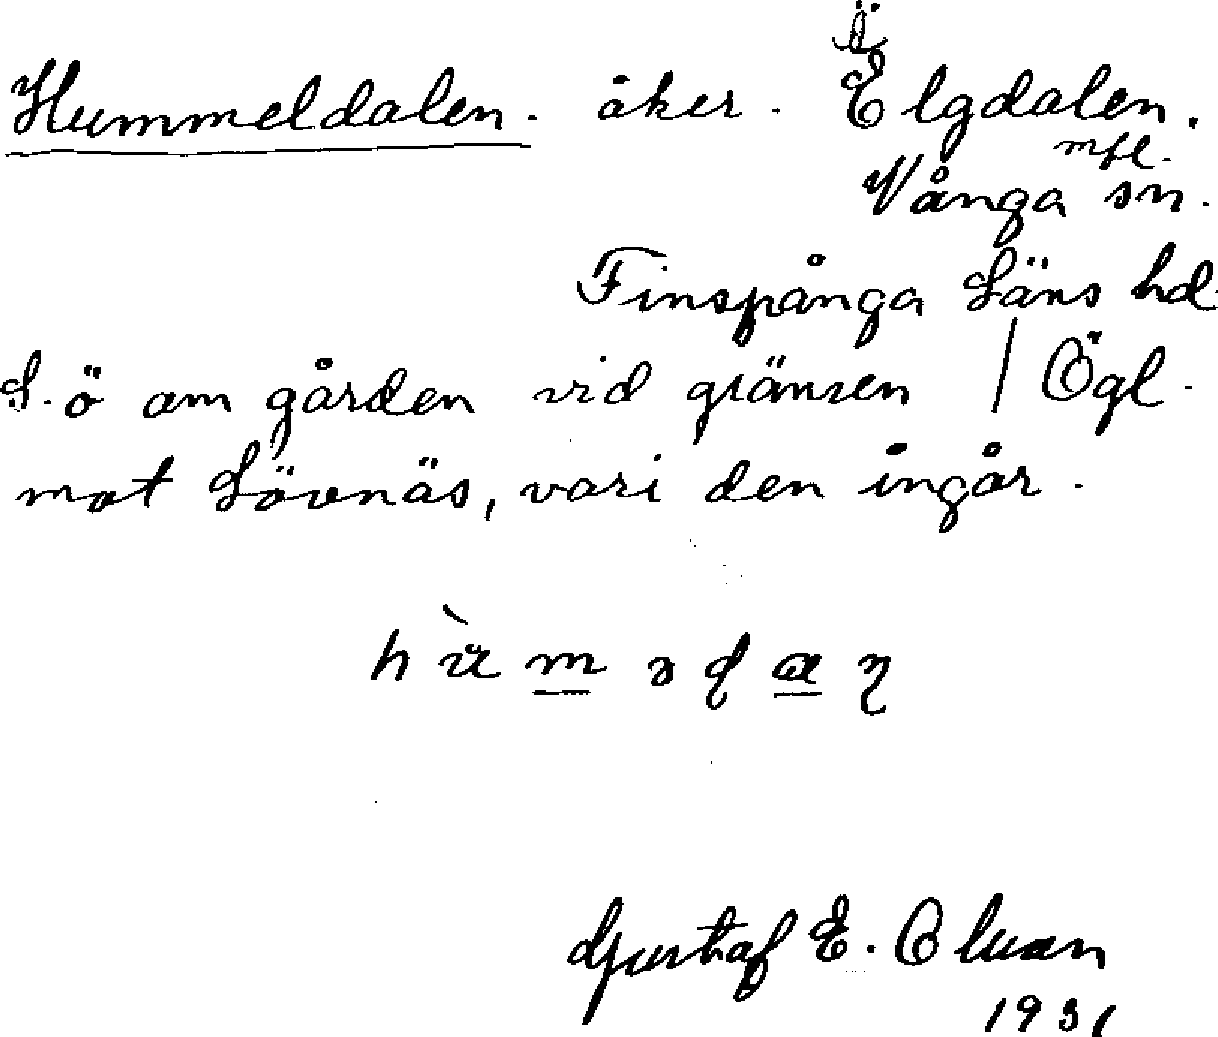 Ä
Hummeldalen. åker. Elgdalen.
mfl.
Vånga sn.
Finspånga Läns hd.
S. ö om gården vid gränsen / Ögl.
mot Lövnäs, vari den ingår.
Gustaf E.
1931